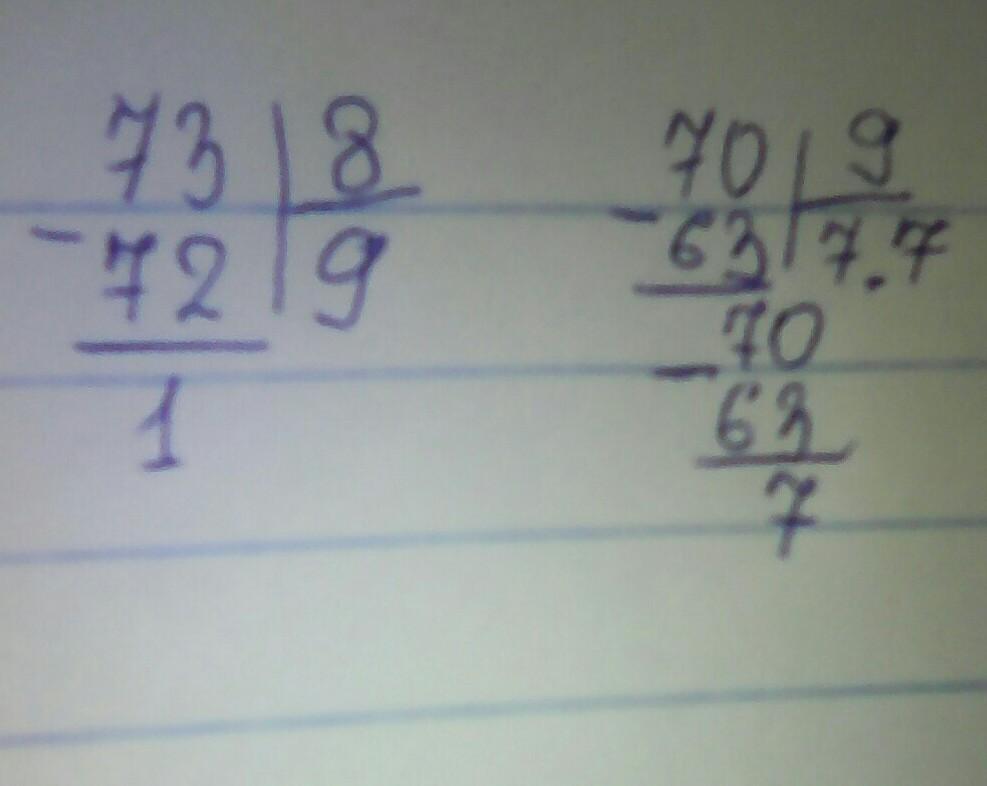 73 8
-72 9
1
70 9
-63 7.7
-70
63
7